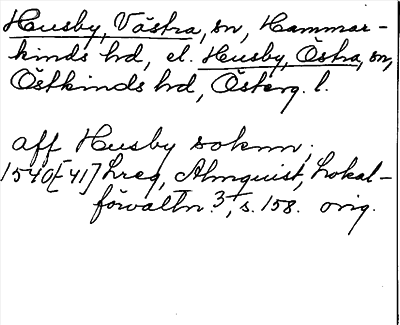 Husby, Västra, sn, Hammar-
kinds hd, el. Husby, Östra, sn,
Östkinds hd, Österg. l.
aff Husby soknn,
1540[-41] Lreg, Almquist, Lokal-
förvaltn. 3, s. 158. orig.